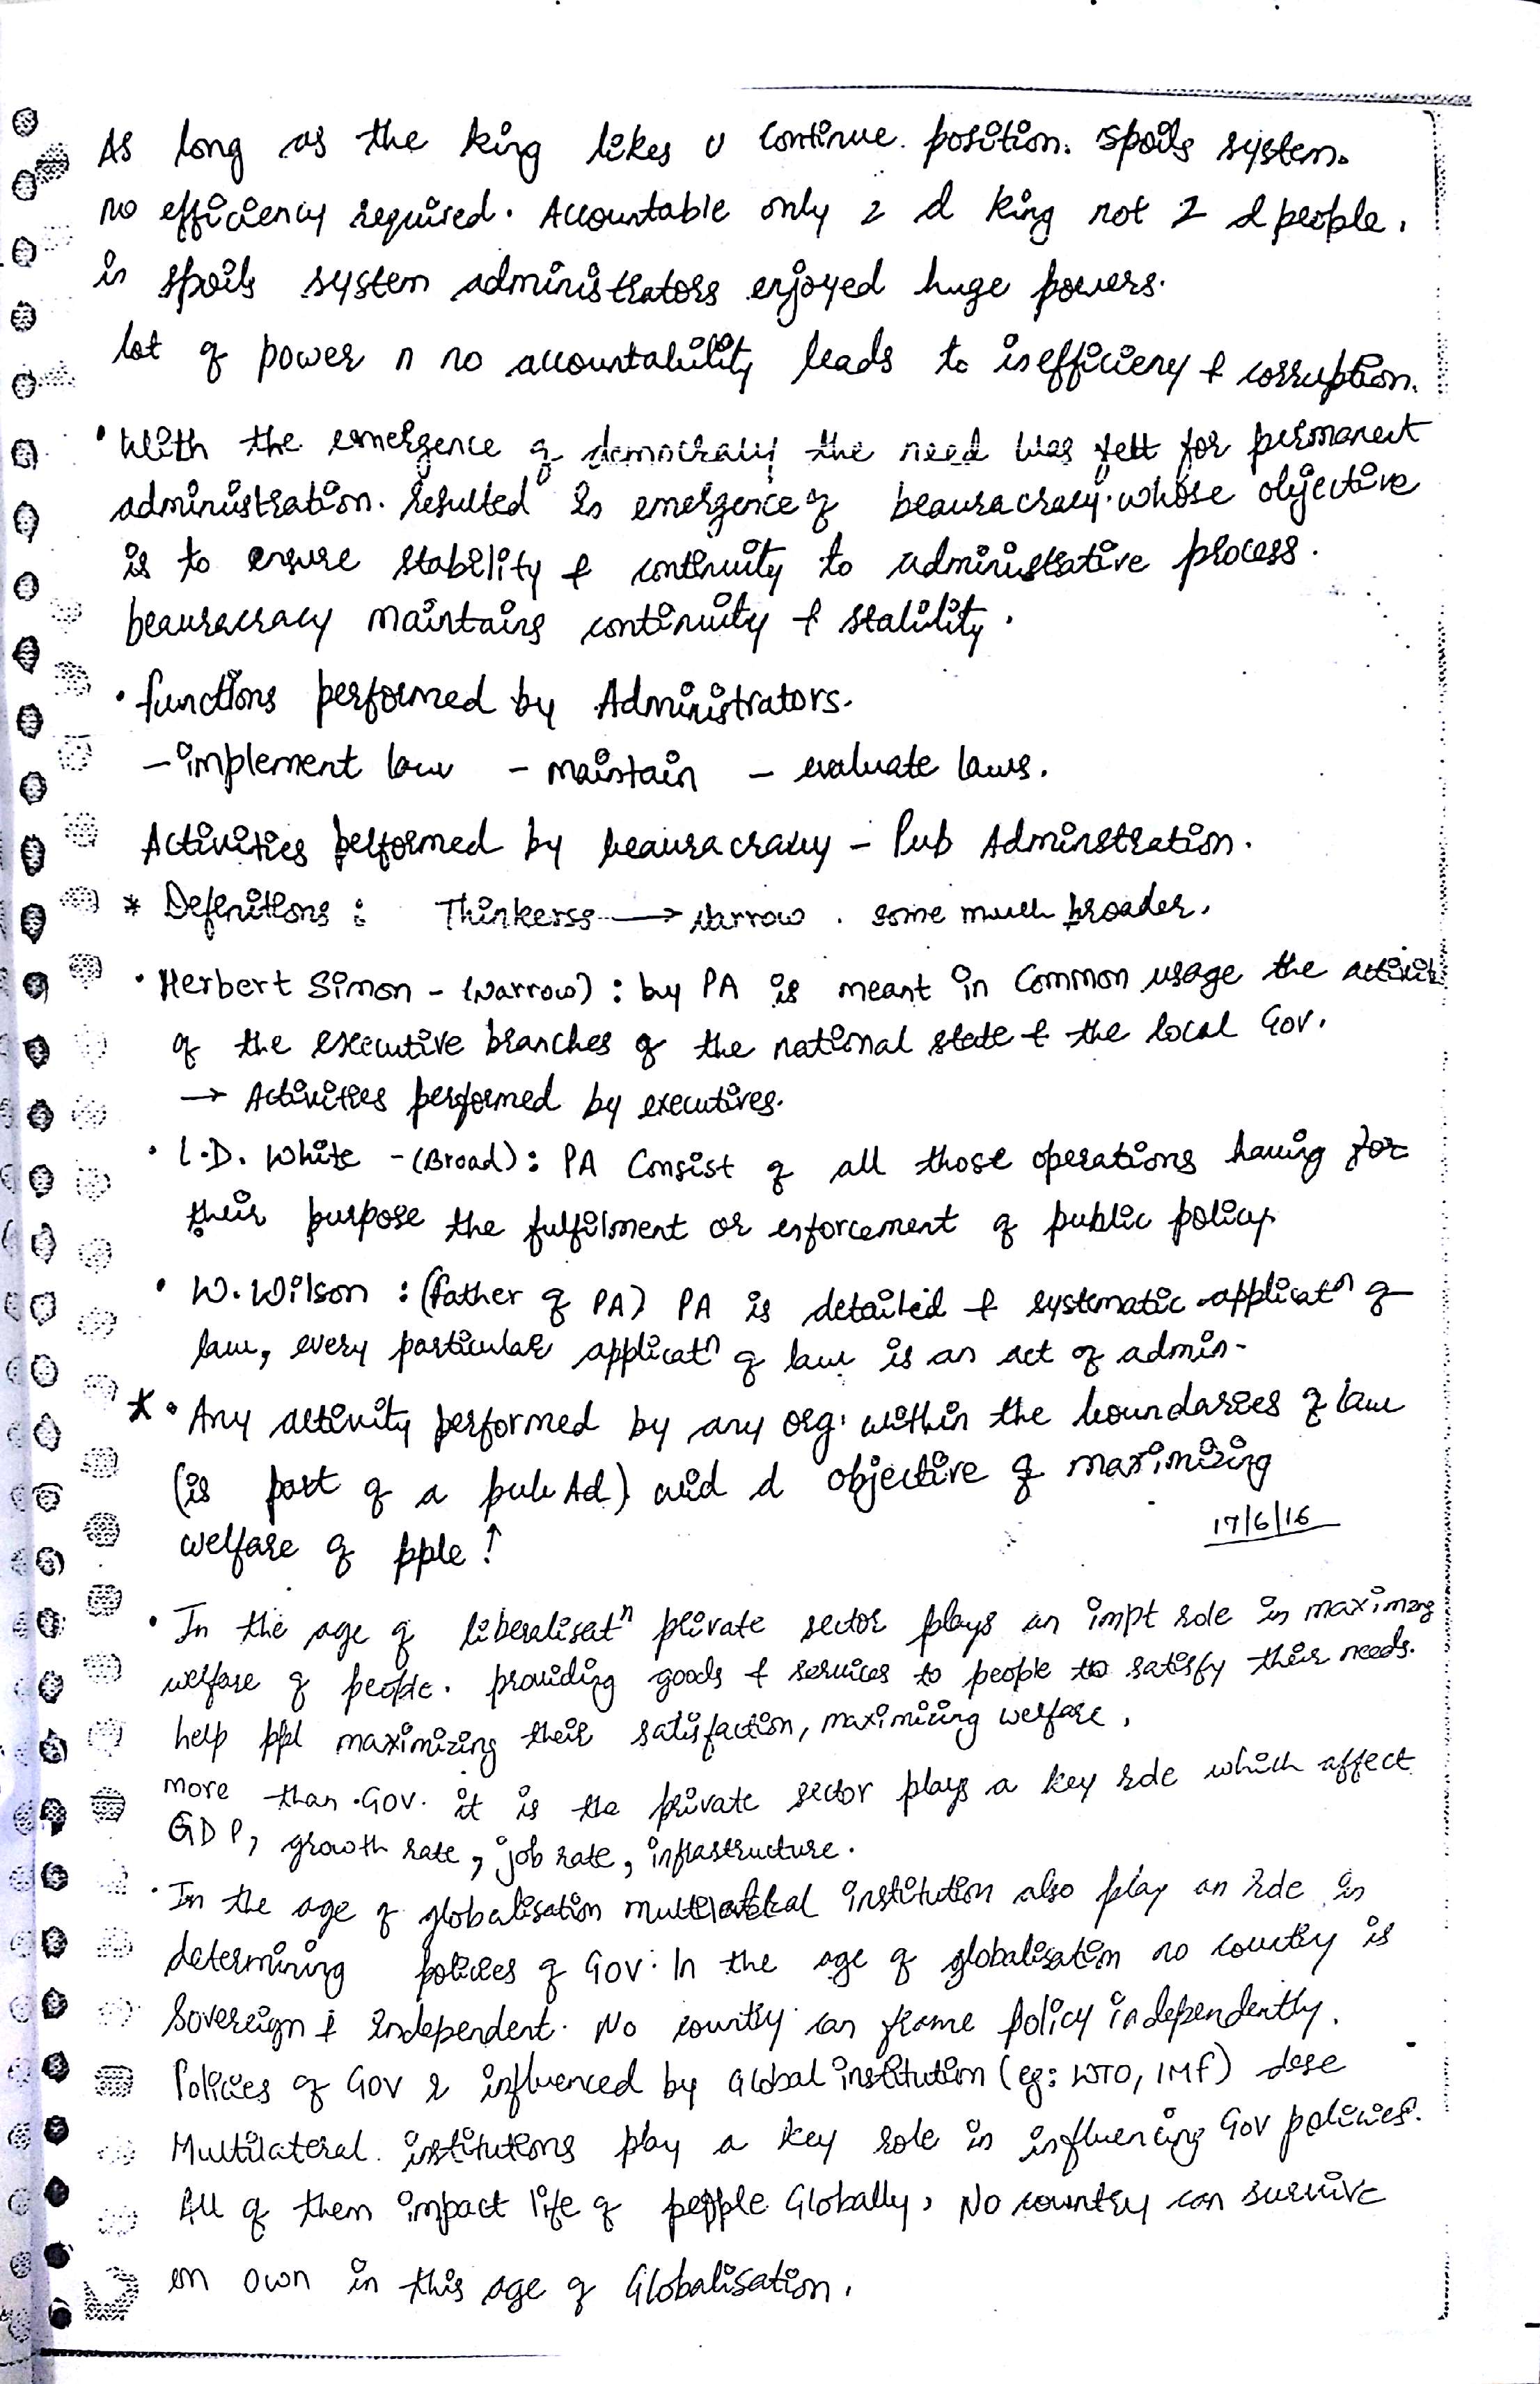 As long as the king likes U continue. position. spoils system.
no efficiency required. Accountable only 2 d king not 2 d people.
in spoils system administrators enjoyed huge powers.
lot of power n no accountability leads to inefficieny & corruption.
• With the emergence of democracy the need was felt for permanent
administration. resulted in emergence of beauracracy. whose objective
is to ensure stability & continuity to administrative process.
beauracracy maintains continuity & stability.
• functions performed by Administrators.
- implement law - maintain - evaluate laws.
Activities performed by beauracracy - Pub Adminstration.
* Definitions : Thinkerss → Narrow . some much broader.
• Herbert Simon - (Narrow) : by PA is meant in Common usage the activit
of the executive branches of the national state & the local Gov.
→ Activities performed by executives.
• L.D. White - (Broad) : PA Consist of all those operations having for
their purpose the fulfilment or enforcement of public policy.
• W. Wilson : (father of PA) PA is detailed & systematic applicatⁿ of
law, every particular applicatⁿ of law is an act of admin-
* • Any activity performed by any org. within the boundaries of law
(is part of a pub Ad) wid d objective of maximizing
welfare of pple ↑
17/6/16
• In the age of liberalisatⁿ private sector plays an impt role in maximizing
welfare of people. providing goods & services to people to satisfy their needs.
help ppl maximizing their satisfaction, maximizing welfare.
more than Gov. it is the private sector plays a key role which affect
GDP, growth rate, job rate, infrastructure.
• In the age of globalisation multilateral institution also play an role in
determining policies of Gov. In the age of globalisation no country is
Sovereign & independent. No country can frame policy independently.
Policies of Gov r influenced by Global institution (eg: WTO, IMF) dese
Multilateral institutions play a key role in influencing Gov policies.
All of them impact life of people Globally, No country can survive
on own in this age of Globalisation.